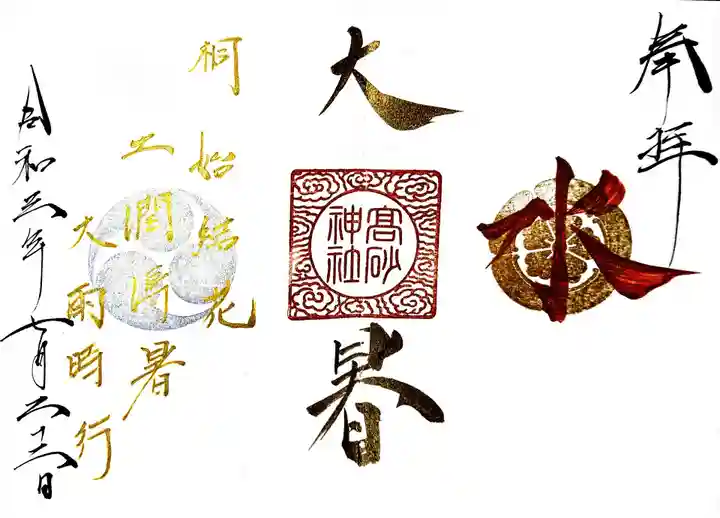 奉拝
水
大
高砂
神社
暑
桐始結花
土潤溽暑
大雨時行
令和三年七月二十二日